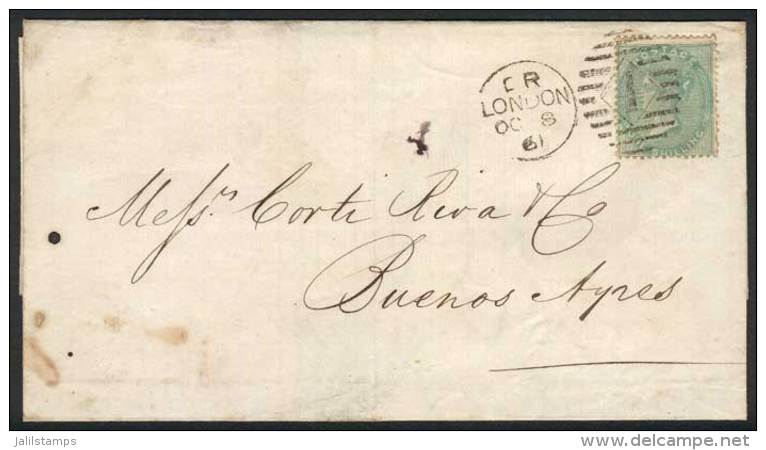 POSTAGE
SHILLING
1
ER
LONDON
OC 8
61
Messrs. Corti Riva & Co
Buenos Ayres
jalilstamps
delcampe.net